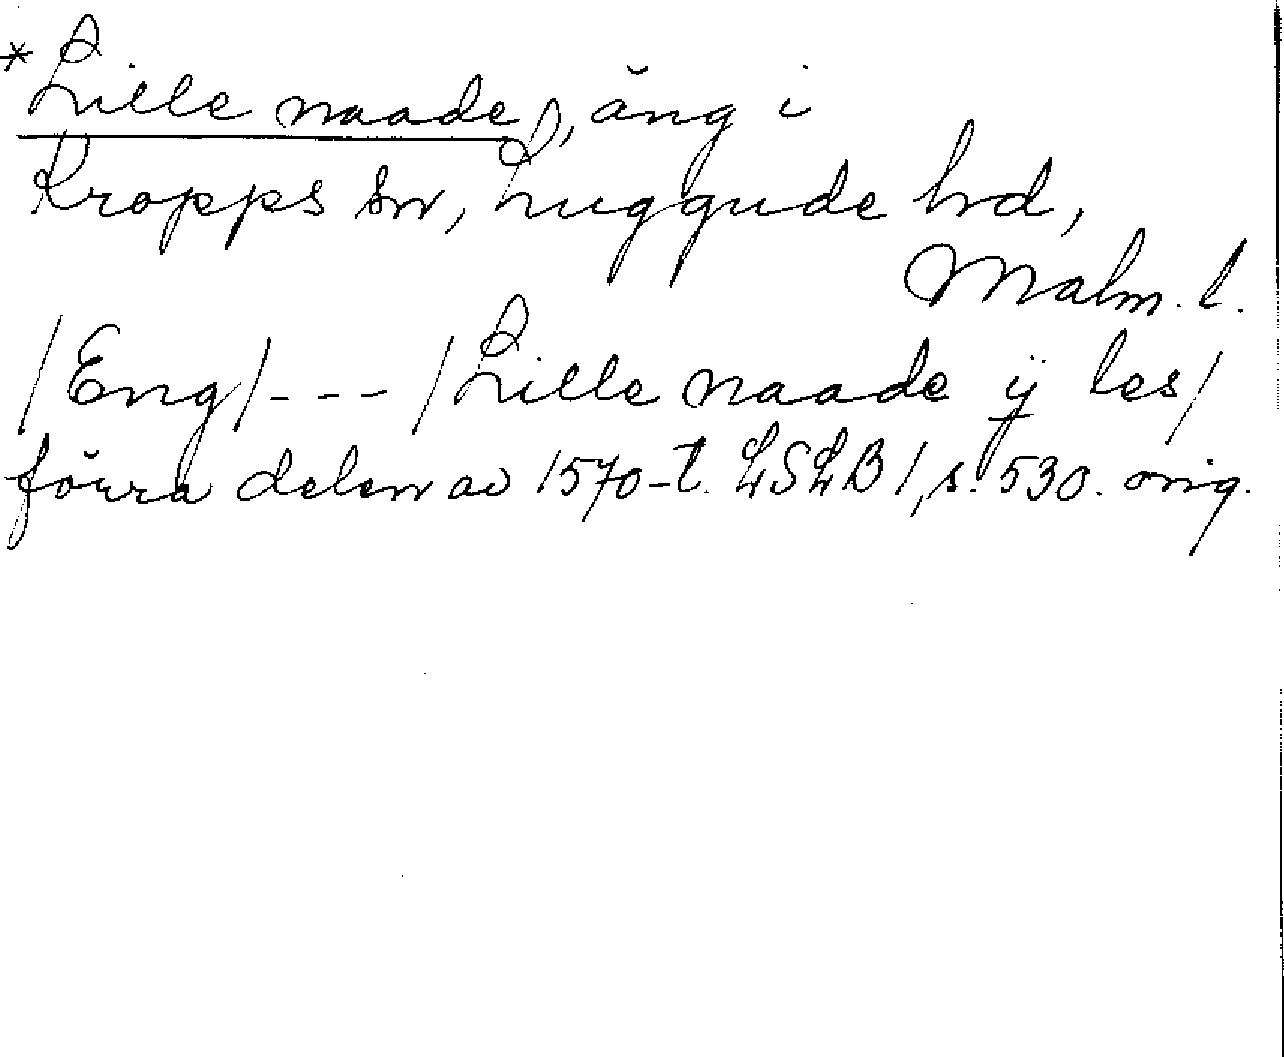 *Lille naade, äng i
Kropps sn, Luggude hd,
Malm. l.
/Eng/ - - - /Lille naade ÿ les/
förra delen av 1570-t. LSLB 1, s. 530. orig.